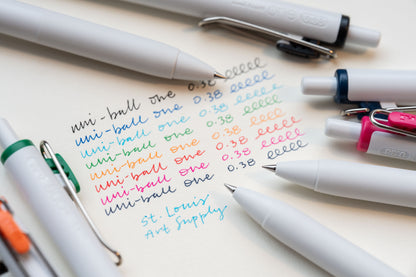 uni-ball one 0.38 eeeee
uni-ball one 0.38 eeeee
uni-ball one 0.38 eeeee
uni-ball one 0.38 eeeee
uni-ball one 0.38 eeeee
uni-ball one 0.38 eeeee
uni-ball one 0.38 eeeee
uni-ball one 0.38 eeeee
St. Louis
Art Supply